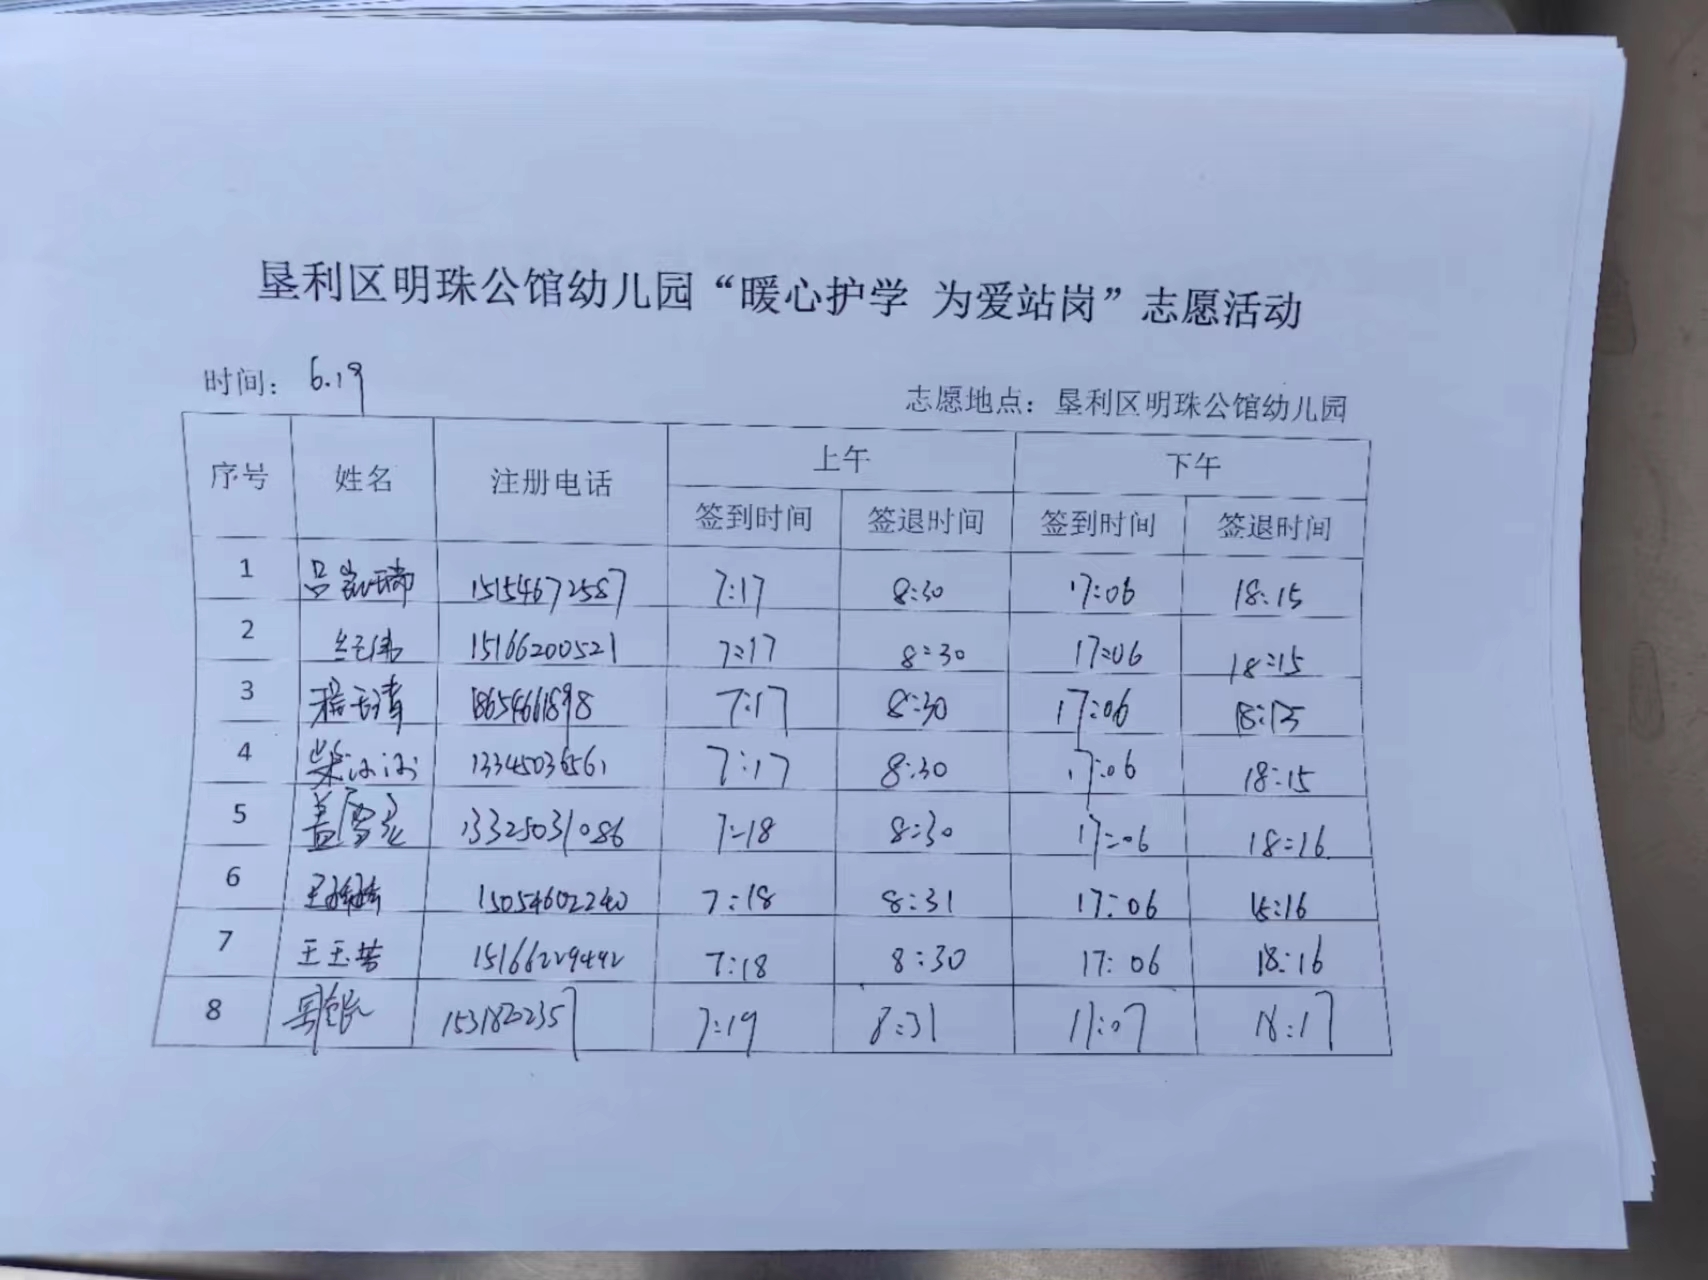 垦利区明珠公馆幼儿园“暖心护学 为爱站岗”志愿活动
时间： 6.19
志愿地点：垦利区明珠公馆幼儿园
序号 姓名 注册电话 上午 下午
签到时间 签退时间 签到时间 签退时间
1 15154672587 7:17 8:30 17:06 18:15
2 15166200521 7:17 8:30 17:06 18:15
3 18654661898 7:17 8:30 17:06 18:15
4 13345036561 7:17 8:30 17:06 18:15
5 13325031086 7:18 8:30 17:06 18:16
6 15054602240 7:18 8:31 17:06 18:16
7 王玉苦 15166229442 7:18 8:30 17:06 18:16
8 7:19 8:31 17:07 18:17